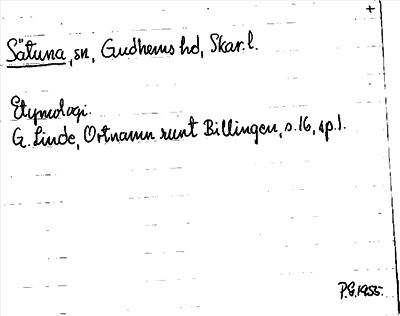 +
Sätuna, sn, Gudhems hd, Skar. l.
Etymologi.
G. Linde, Ortnamn runt Billingen, s. 16, sp. 1.
P.G. 1955.